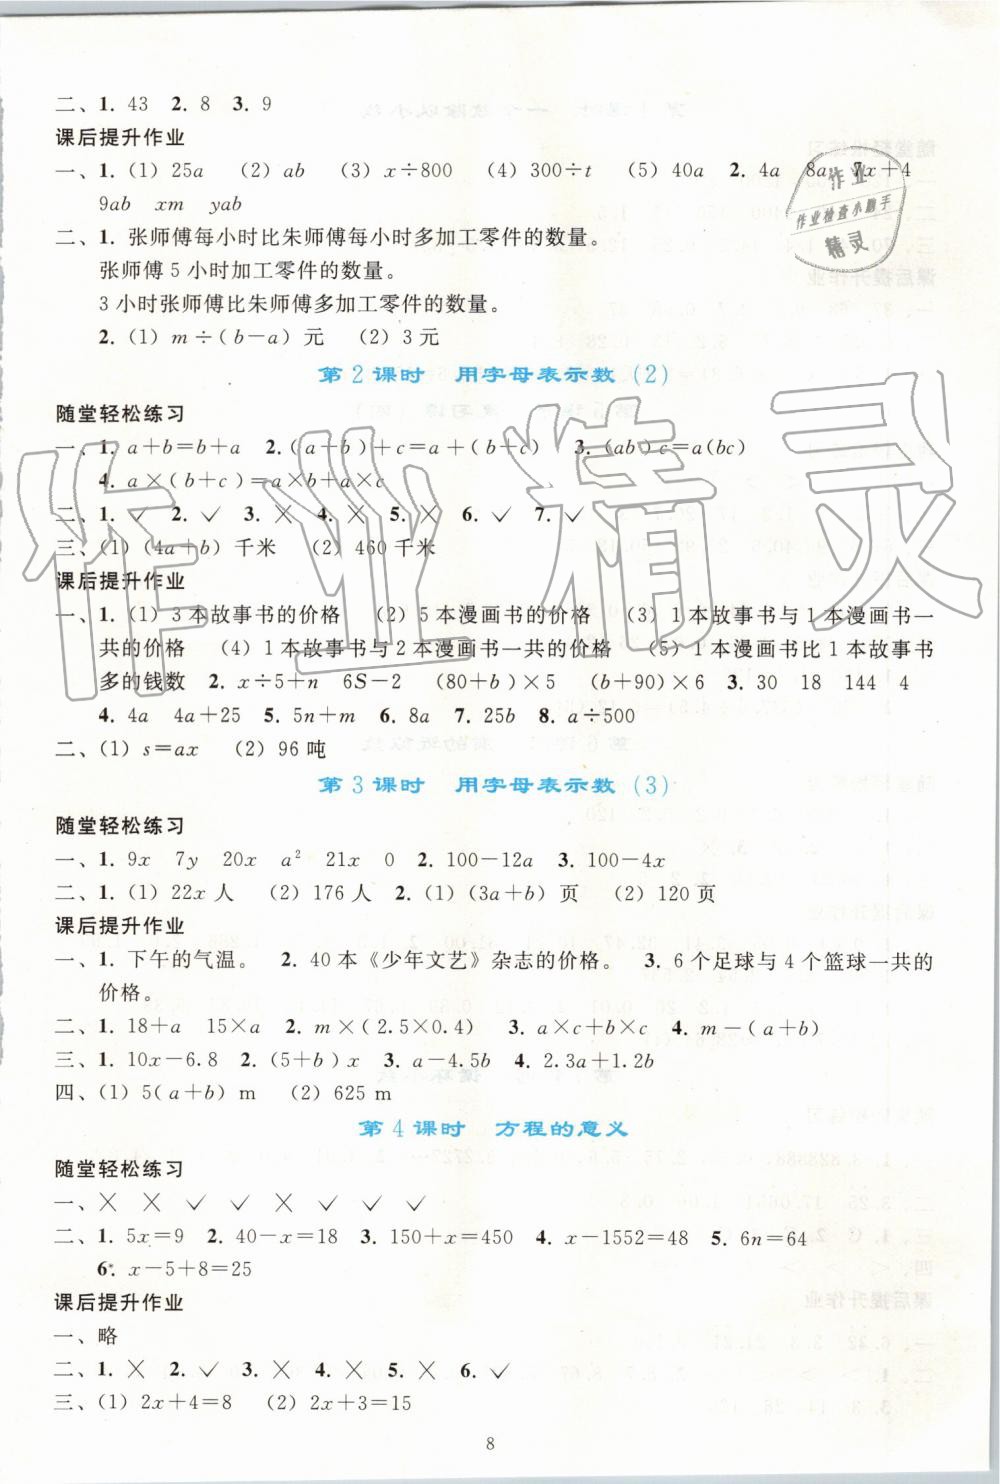 二、1. 43 2. 8 3. 9
课后提升作业
一、1. (1) 25a (2) ab (3) x÷800 (4) 300÷t (5) 40a 2. 4a 8a 7x+4
9ab xm yab
二、1. 张师傅每小时比朱师傅每小时多加工零件的数量。
张师傅 5 小时加工零件的数量。
3 小时张师傅比朱师傅多加工零件的数量。
2. (1) m÷(b-a) 元 (2) 3 元
第 2 课时 用字母表示数 (2)
随堂轻松练习
一、1. a+b=b+a 2. (a+b)+c=a+(b+c) 3. (ab)c=a(bc)
4. a×(b+c)=a×b+a×c
二、1. ✓ 2. ✓ 3. × 4. × 5. × 6. ✓ 7. ✓
三、(1) (4a+b) 千米 (2) 460 千米
课后提升作业
一、1. (1) 3 本故事书的价格 (2) 5 本漫画书的价格 (3) 1 本故事书与 1 本漫画书一
共的价格 (4) 1 本故事书与 2 本漫画书一共的价格 (5) 1 本漫画书比 1 本故事书
多的钱数 2. x÷5+n 6S-2 (80+b)×5 (b+90)×6 3. 30 18 144 4
4. 4a 4a+25 5. 5n+m 6. 8a 7. 25b 8. a÷500
二、(1) s=ax (2) 96 吨
第 3 课时 用字母表示数 (3)
随堂轻松练习
一、1. 9x 7y 20x a² 21x 0 2. 100-12a 3. 100-4x
二、1. (1) 22x 人 (2) 176 人 2. (1) (3a+b) 页 (2) 120 页
课后提升作业
一、1. 下午的气温。 2. 40 本《少年文艺》杂志的价格。 3. 6 个足球与 4 个篮球一共的
价格。
二、1. 18+a 15×a 2. m×(2.5×0.4) 3. a×c+b×c 4. m-(a+b)
三、1. 10x-6.8 2. (5+b)x 3. a-4.5b 4. 2.3a+1.2b
四、(1) 5(a+b) m (2) 625 m
第 4 课时 方程的意义
随堂轻松练习
一、× × ✓ ✓ × ✓ ✓ ✓
二、1. 5x=9 2. 40-x=18 3. 150+x=450 4. x-1552=48 5. 6n=64
6. x-5+8=25
课后提升作业
一、略
二、1. × 2. ✓ 3. × 4. × 5. × 6. ✓
三、(1) 2x+4=8 (2) 2x+3=15
8
作业
作业检查小助手
精灵
作业精灵